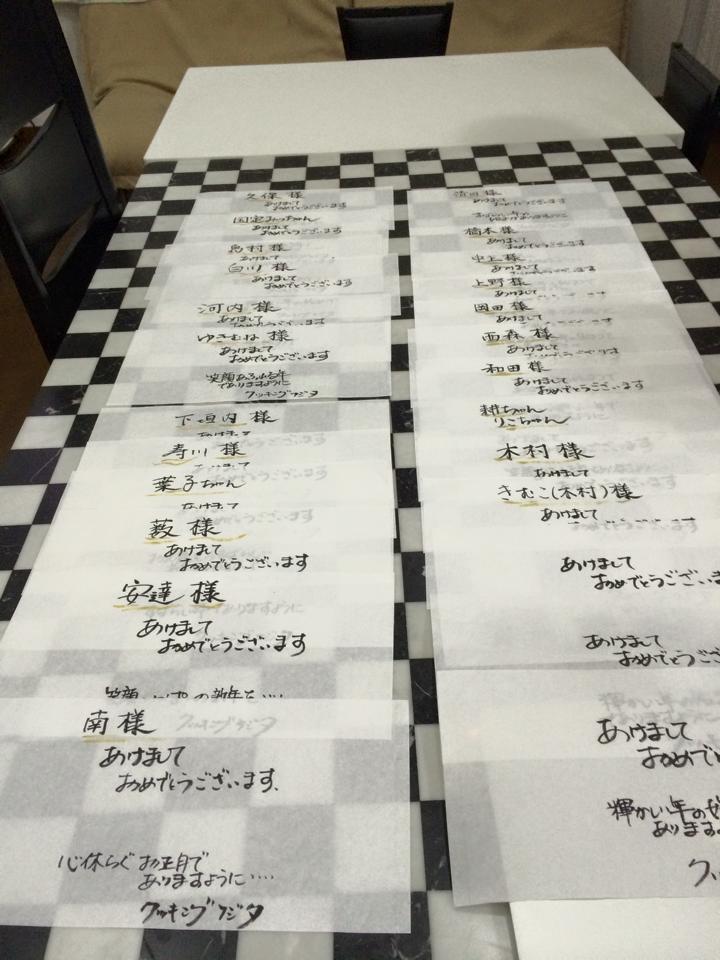 久保 様
あけまして
おめでとうございます
国定みっちゃん
あけまして
おめでとうございます
島村 様
あけまして
白川 様
あけまして
おめでとうございます
河内 様
あけまして
おめでとうございます
ゆきむね 様
あけまして
おめでとうございます
笑顔あふれる年
でありますように
クッキングフジタ
下垣内 様
あけまして
寿川 様
あけまして
葉子ちゃん
あけまして
薮 様
あけまして
おめでとうございます
安達 様
あけまして
おめでとうございます
笑顔いっぱいの新年を‥‥
南 様
あけまして
おめでとうございます.
心休らぐお正月で
ありますように‥‥
クッキングフジタ
様
あけまして
おめでとうございます
橋本 様
あけまして
おめでとうございます
中上 様
あけまして
おめでとうございます
上野 様
あけまして
岡田 様
あけまして
西森 様
あけまして
おめでとうございます
和田 様
あけまして
おめでとうございます
耕ちゃん
りこちゃん
木村 様
あけまして
きむこ(木村) 様
あけまして
あけまして
おめでとうございま
あけまして
おめでとうござ
あけまして
おめでと
輝かしい年の
ありますよ
ク